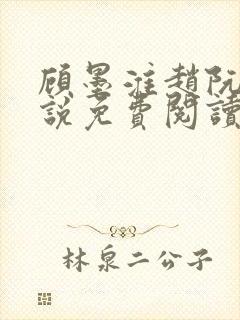 顾墨淮趙阮
說免費閱讀
林泉二公子